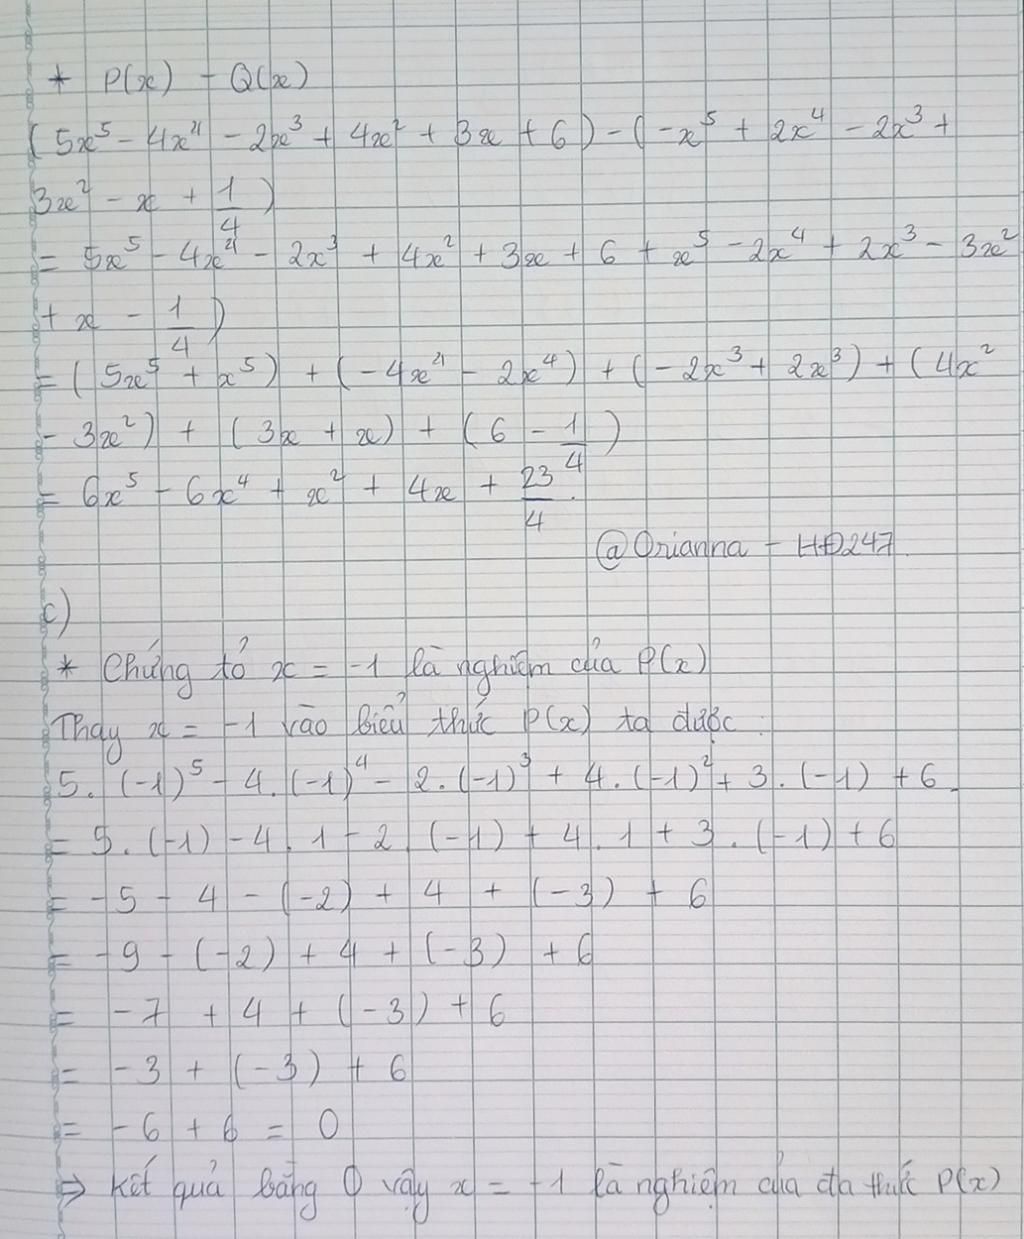 * P(x) - Q(x)
(5x⁵ - 4x⁴ - 2x³ + 4x² + 3x + 6) - (-x⁵ + 2x⁴ - 2x³ +
3x² - x + 1/4)
= 5x⁵ - 4x⁴ - 2x³ + 4x² + 3x + 6 + x⁵ - 2x⁴ + 2x³ - 3x²
+ x - 1/4)
= (5x⁵ + x⁵) + (-4x⁴ - 2x⁴) + (-2x³ + 2x³) + (4x²
- 3x²) + (3x + x) + (6 - 1/4)
= 6x⁵ - 6x⁴ + x² + 4x + 23/4.
@Orianna - HĐ247
c)
* Chứng tỏ x = -1 là nghiệm của P(x)
Thay x = -1 vào biểu thức P(x) ta được:
5. (-1)⁵ - 4. (-1)⁴ - 2. (-1)³ + 4. (-1)² + 3. (-1) + 6
= 5. (-1) - 4. 1 - 2. (-1) + 4. 1 + 3. (-1) + 6
= -5 - 4 - (-2) + 4 + (-3) + 6
= -9 - (-2) + 4 + (-3) + 6
= -7 + 4 + (-3) + 6
= -3 + (-3) + 6
= -6 + 6 = 0
⇒ Kết quả bằng 0 vậy x = -1 là nghiệm của đa thức P(x)